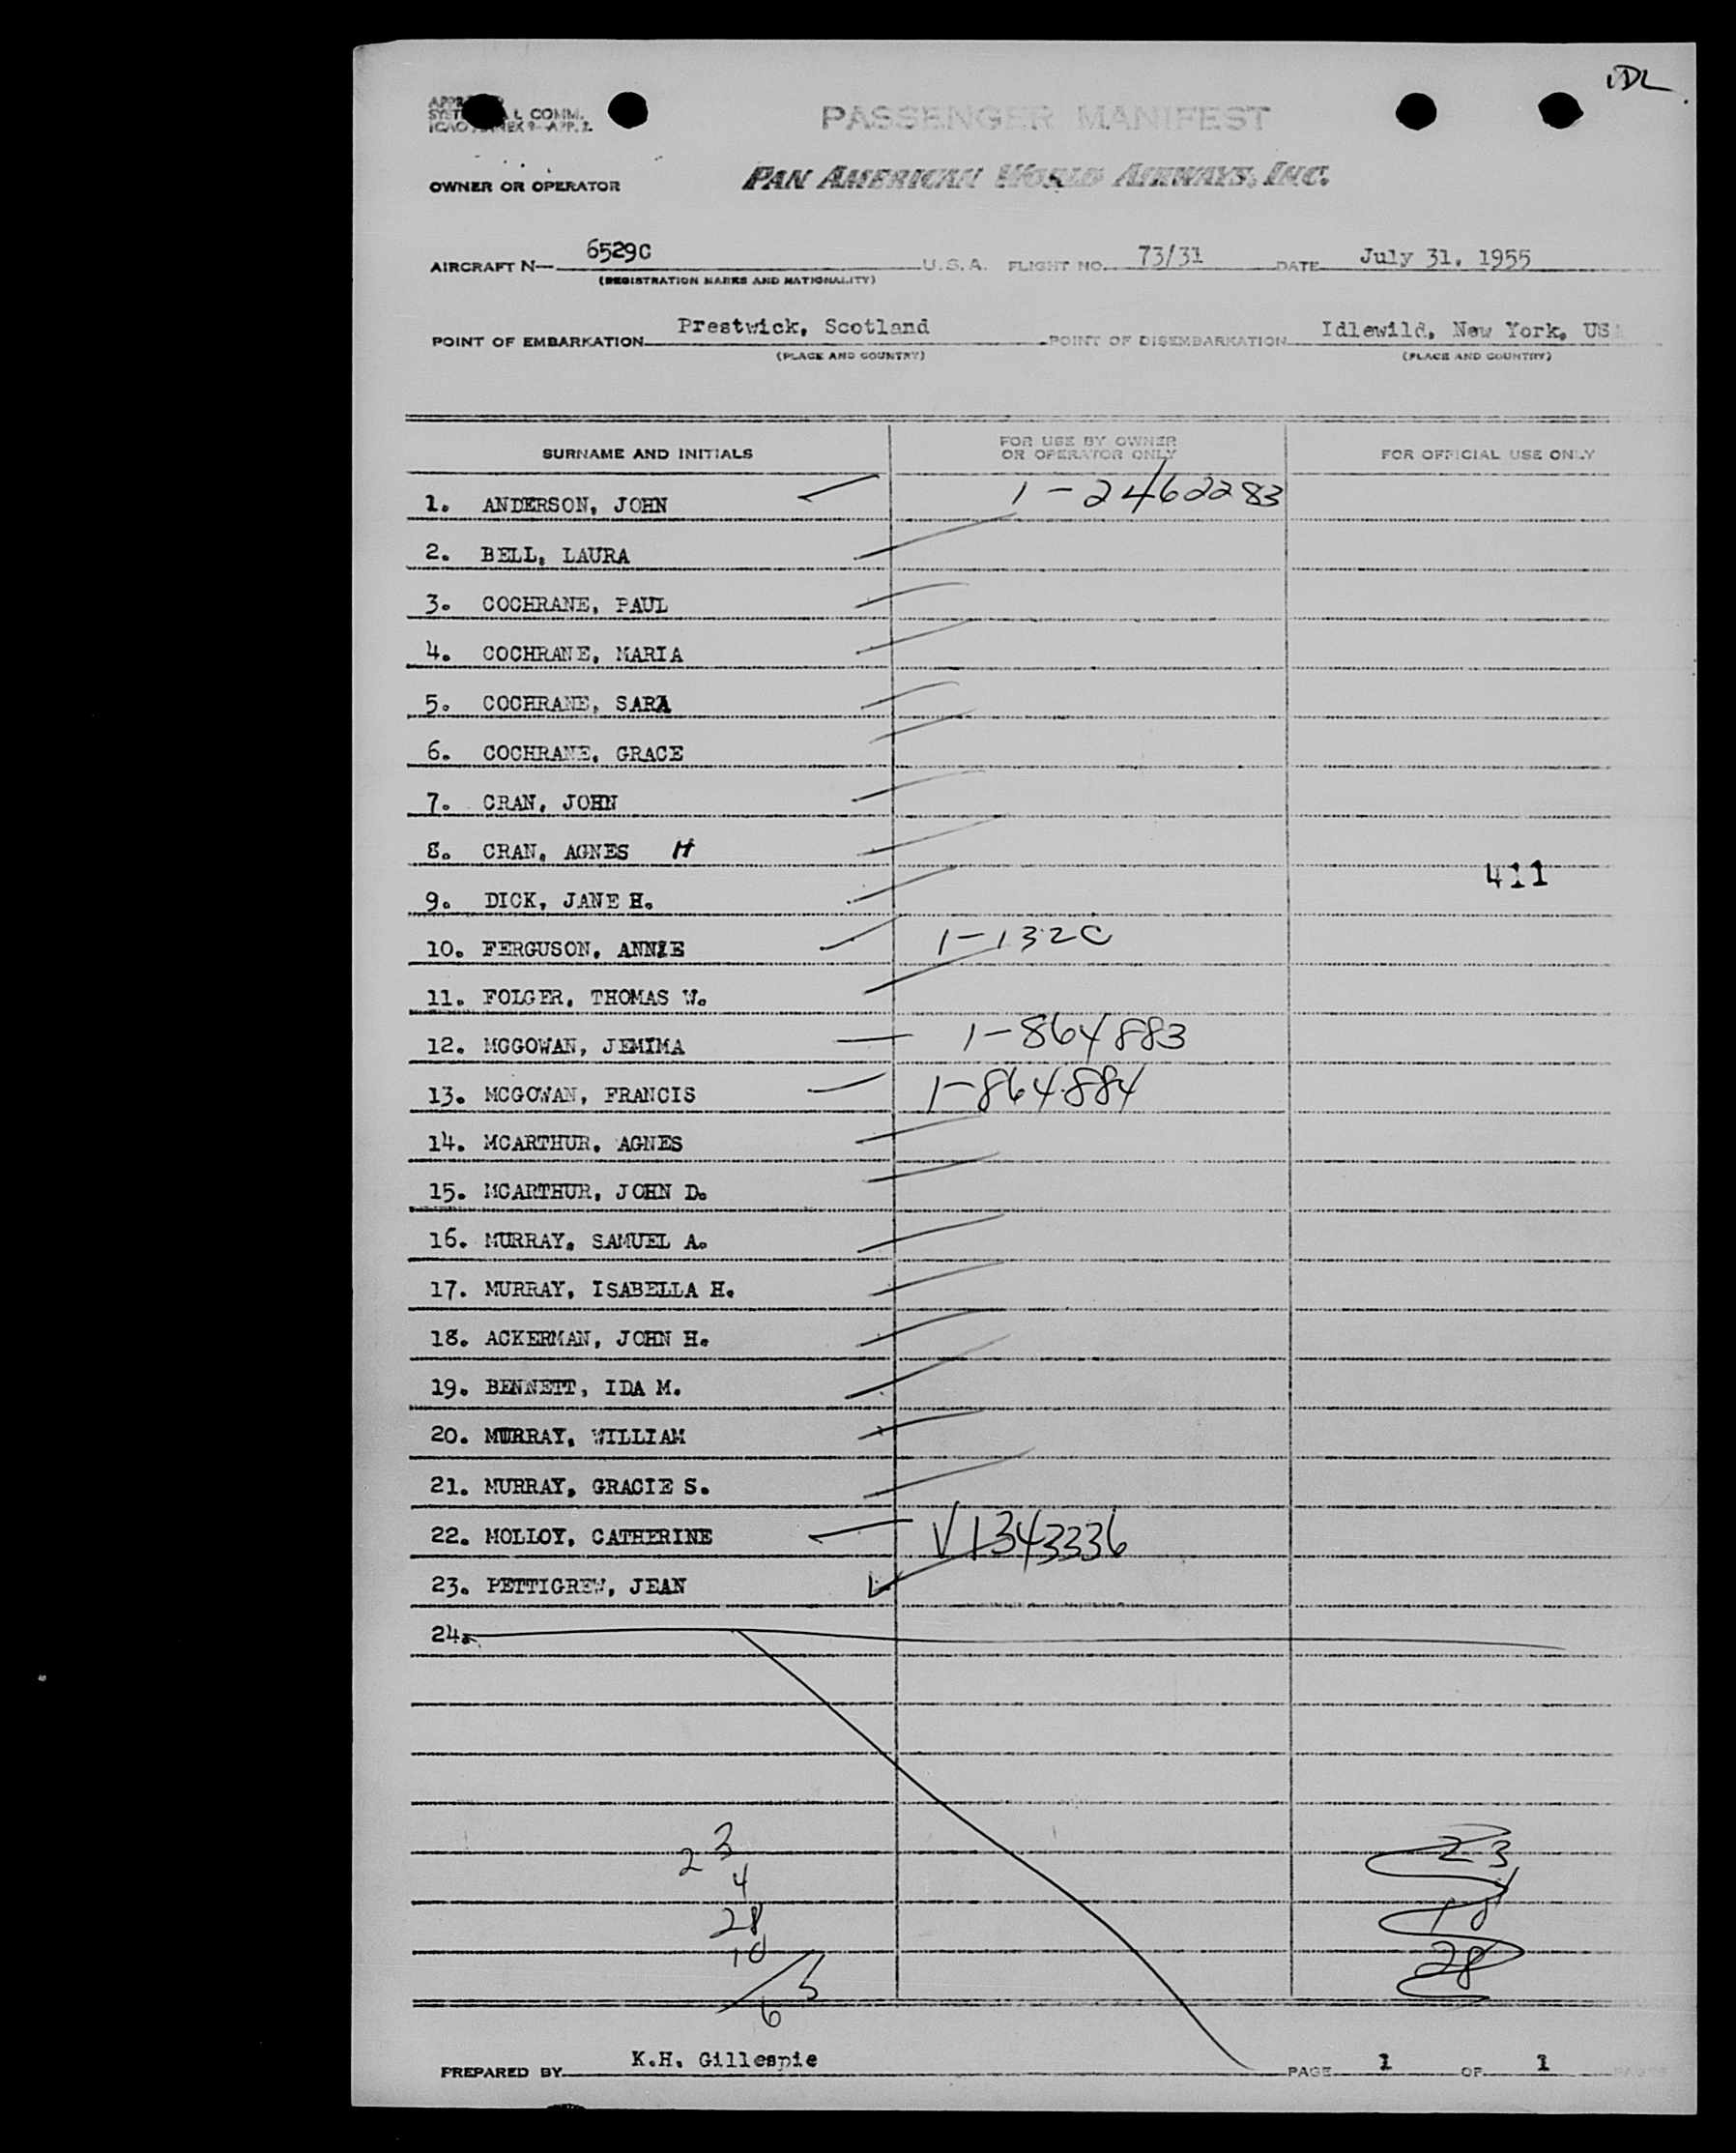 JDL
PASSENGER MANIFEST
L COMM.
APP. 2
OWNER OR OPERATOR PAN AMERICAN WORLD AIRWAYS, INC.
AIRCRAFT N— 6529C U.S.A. FLIGHT NO. 73/31 DATE July 31, 1955
(REGISTRATION MARKS AND NATIONALITY)
POINT OF EMBARKATION Prestwick, Scotland POINT OF DISEMBARKATION Idlewild, New York, US
(PLACE AND COUNTRY) (PLACE AND COUNTRY)
SURNAME AND INITIALS FOR USE BY OWNER OR OPERATOR ONLY FOR OFFICIAL USE ONLY
1. ANDERSON, JOHN 1-2462283
2. BELL, LAURA
3. COCHRANE, PAUL
4. COCHRANE, MARIA
5. COCHRANE, SARA
6. COCHRANE, GRACE
7. CRAN, JOHN
8. CRAN, AGNES H
411
9. DICK, JANE H.
10. FERGUSON, ANNIE 1-132C
11. FOLGER, THOMAS W.
12. MCGOWAN, JEMIMA 1-864883
13. MCGOWAN, FRANCIS 1-864884
14. MCARTHUR, AGNES
15. MCARTHUR, JOHN D.
16. MURRAY, SAMUEL A.
17. MURRAY, ISABELLA H.
18. ACKERMAN, JOHN H.
19. BENNETT, IDA M.
20. MURRAY, WILLIAM
21. MURRAY, GRACIE S.
22. MOLLOY, CATHERINE V1343336
23. PETTIGREW, JEAN
24.
23 23
4
28
10 28
65
PREPARED BY K.H. Gillespie PAGE 1 OF 1